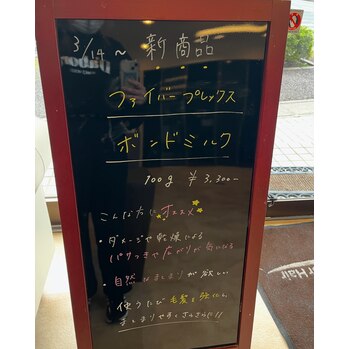 3/14〜 新商品
ファイバープレックス
ボンドミルク
100g ¥3,300−
こんな方にオススメ
・ダメージや乾燥による
パサつきや広がりが気になる
・自然なまとまりが欲しい
使うたび毛髪を強化し
まとまりやすくさらさらに!!
Hair